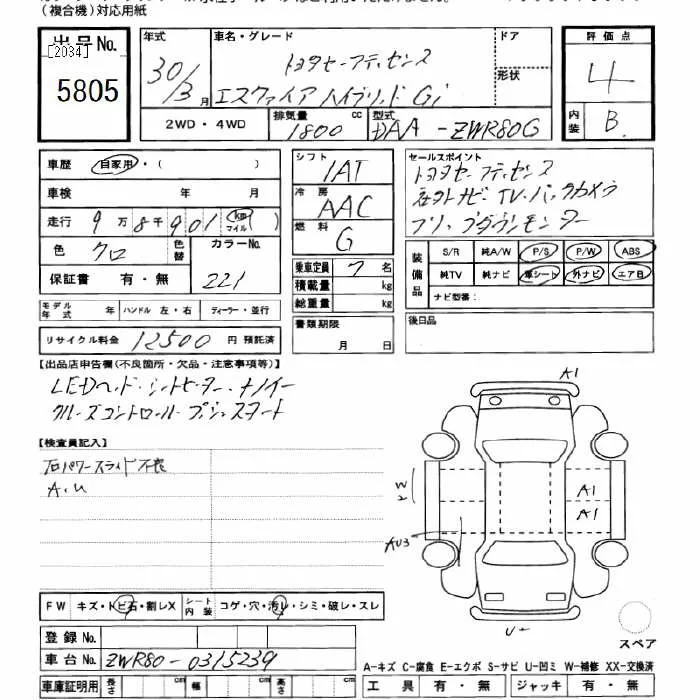 (複合機)対応用紙
出品No.
[2034]
5805
年式
30/3月
車名・グレード
トヨタセーフティセンス
エスクァイア ハイブリッド Gi
ドア
形状
評価点
4
内装
B
2WD・4WD
排気量 cc
1800
型式
DAA-ZWR80G
車歴 自家用・( )
車検 年 月
走行 9万8千901 km マイル
色 クロ
色替
カラーNo.
221
保証書 有・無
モデル年式 年 ハンドル 左・右 ディーラー・並行
リサイクル料金 12500円 預託済
シフト
IAT
冷房
AAC
燃料
G
乗車定員 7名
積載量 kg
総重量 kg
書類期限
月 日
セールスポイント
トヨタセーフティセンス
社外ナビ・TV・バックカメラ
フリップダウンモニター
装備品
S/R 純A/W P/S P/W ABS
純TV 純ナビ 革シート 外ナビ エアB
ナビ型番:
後日品
【出品店申告欄(不良箇所・欠品・注意事項等)】
LEDヘッド・シートヒーター・ナノイー
クルーズコントロール・プッシュスタート
【検査員記入】
右パワースライド不良
A.U
A1
W
A1
A1
AU3
U-
スペア
FW キズ・トビ石・割レX
シート内装 コゲ・穴・汚レ・シミ・破レ・スレ
登録No.
車台No. ZWR80-0315239
車庫証明用 長さ cm 幅 cm 高さ cm
A-キズ C-腐食 E-エクボ S-サビ U-凹ミ W-補修 XX-交換済
工具 有・無 ジャッキ 有・無